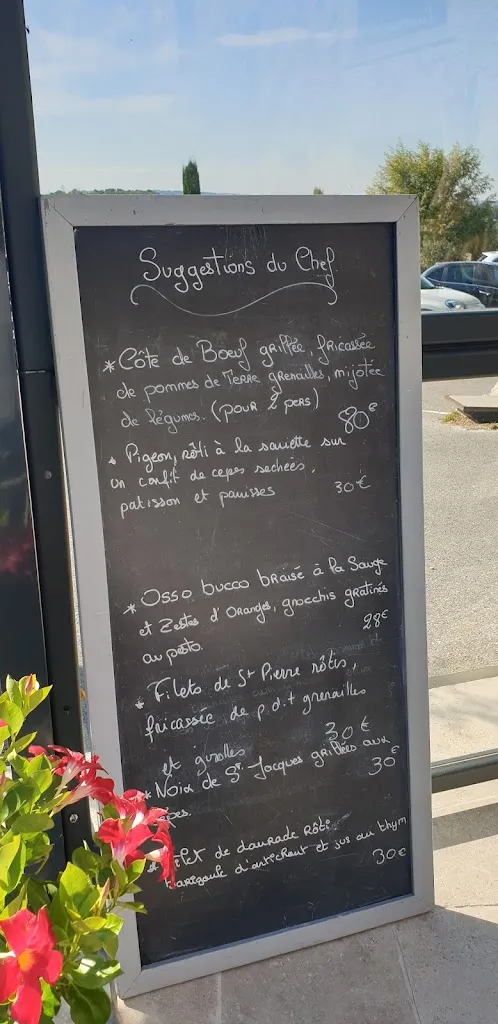 Suggestions du Chef
* Côte de Boeuf grillée, fricassée
de pommes de Terre grenailles, mijotée
de légumes. (pour 2 pers)
80€
* Pigeon, rôti à la sariette sur
un confit de cepes sechées,
patisson et panisses 30€
* Osso bucco braisé à la Sauge
et Zestes d'Oranges, gnocchis gratinés
au pesto. 28€
* Filets de St Pierre rôtis,
fricassée de p.d.t grenailles
et girolles 30€
* Noix de St Jacques grillées aux
30€
de daurade Rôti
barigoule d'artichaut et jus au thym
30€